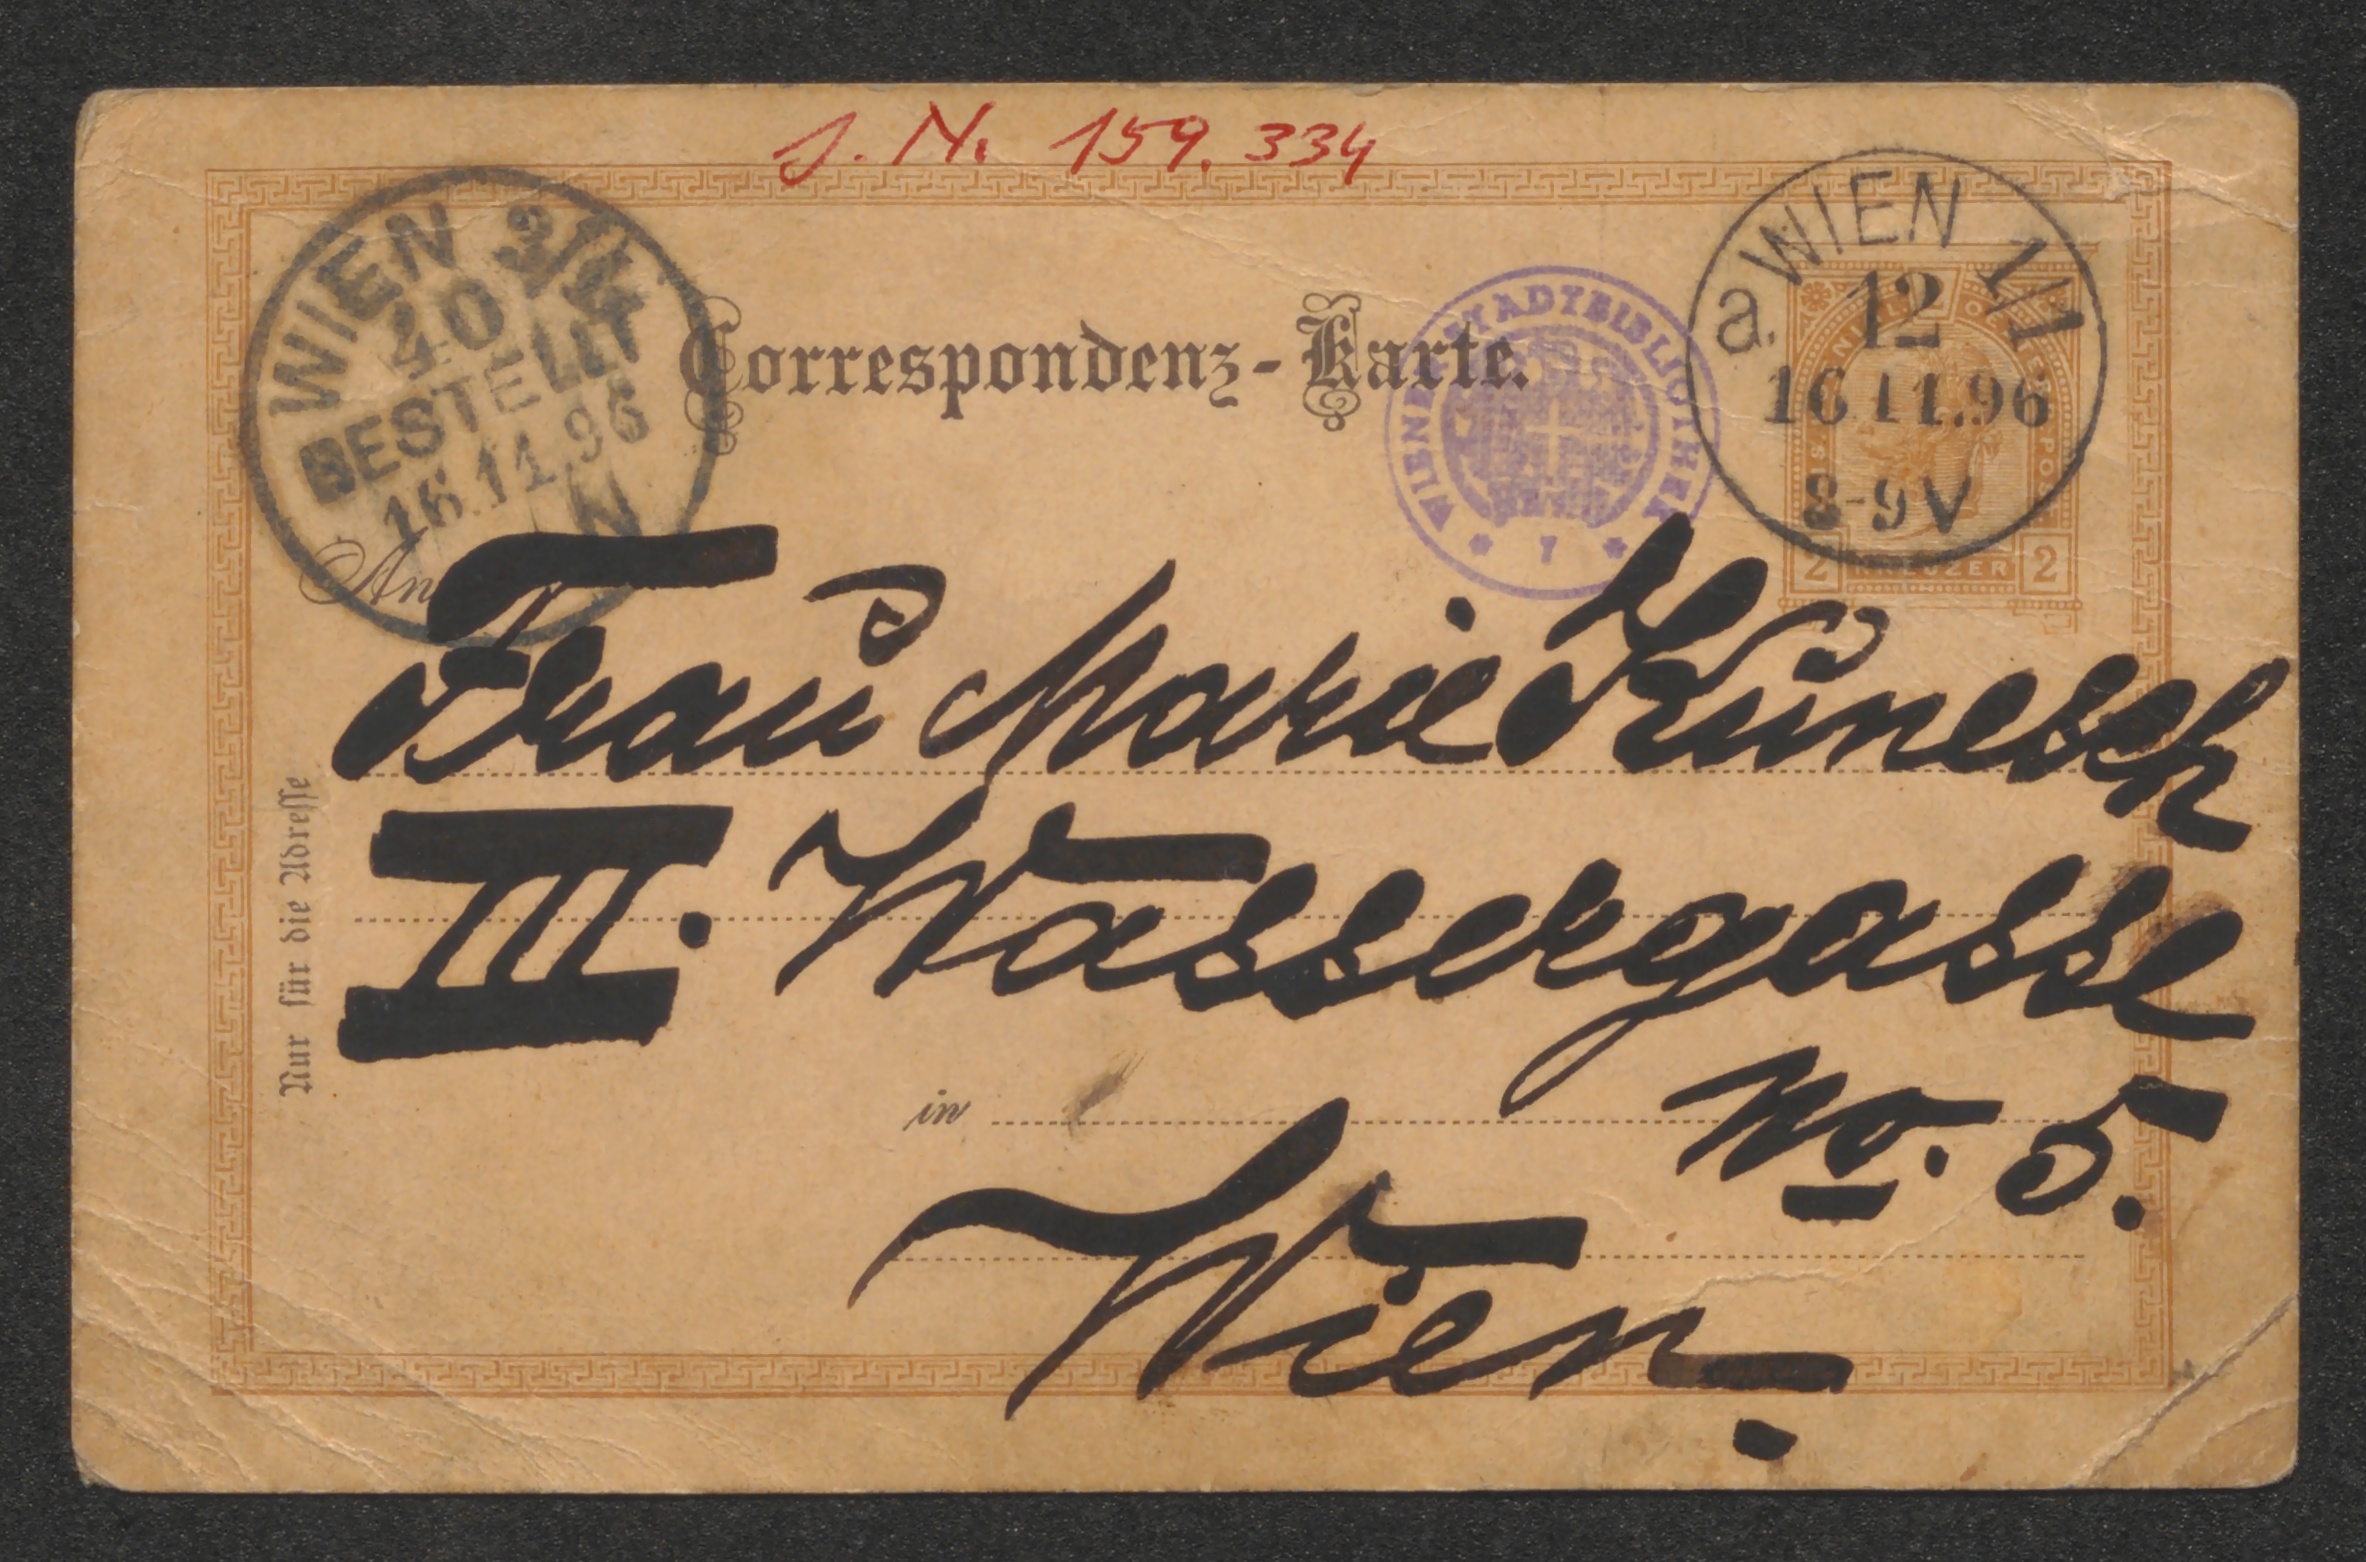 J. N. 159.334
WIEN 3/4
40
BESTELLT
16.11.96
N
Correspondenz-Karte.
WIENER STADTBIBLIOTHEK
a. WIEN 1/1
12
16.11.96
8-9V
2 KREUZER 2
An
Frau Marie Kunesch
III. Wassergasse
No. 5.
in
Wien.
Nur für die Adresse